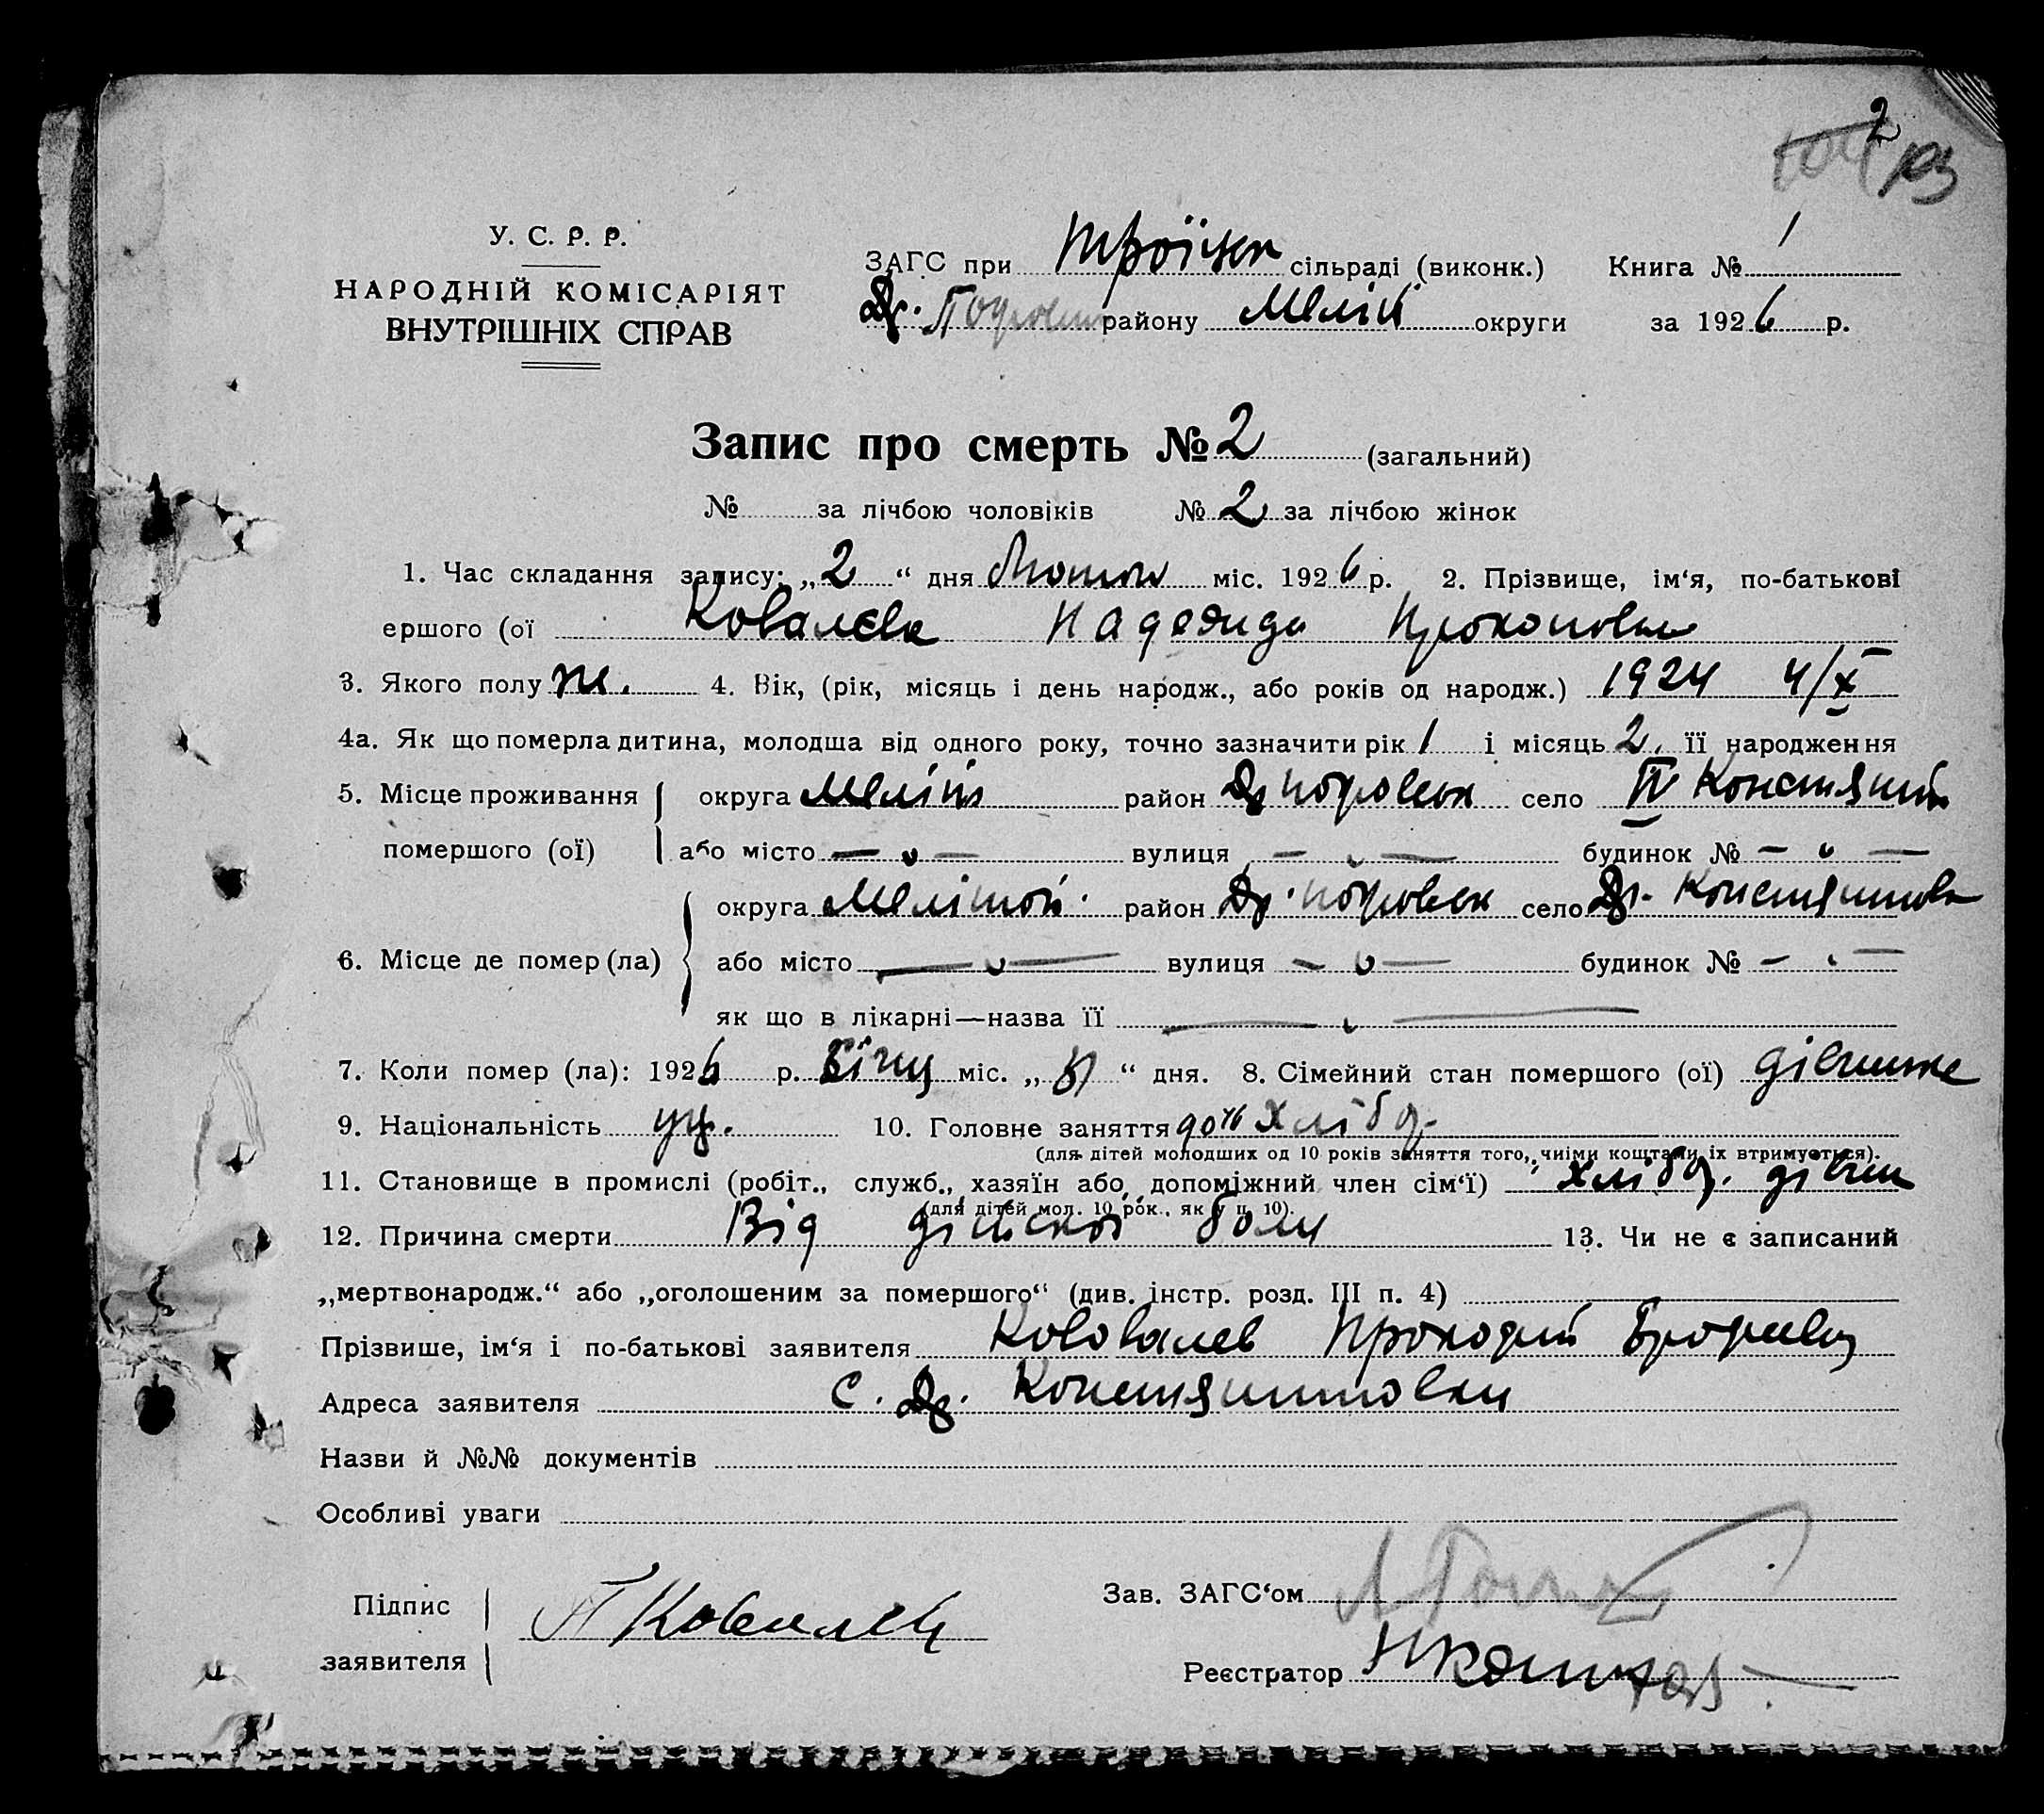 2
103
У. С. Р. Р.
НАРОДНІЙ КОМІСАРІЯТ
ВНУТРІШНІХ СПРАВ
ЗАГС при Троїцьк сільраді (виконк.) Книга № 1
Др. Покровськ району Меліт округи за 1926 р.
Запис про смерть № 2 (загальний)
№ за лічбою чоловіків № 2 за лічбою жінок
1. Час складання запису: „2“ дня Лютого міс. 1926 р. 2. Прізвище, ім‘я, по-батькові
ершого (ої Ковалєва Надежда Прокоповна
3. Якого полу ж. 4. Вік, (рік, місяць і день народж., або років од народж.) 1924 4/X
4а. Як що померла дитина, молодша від одного року, точно зазначити рік 1 і місяць 2. її народження
5. Місце проживання округа Меліт район Др Покровськ село IV Констянт
помершого (ої) або місто — „ — вулиця — „ — будинок № — „ —
6. Місце де помер (ла) округа Мелітоп. район Др. Покровськ село Др. Констянтновк
або місто — „ — вулиця — „ — будинок № — „ —
як що в лікарні—назва її — „ —
7. Коли помер (ла): 1926 р. Січц міс. „ “ дня. 8. Сімейний стан помершого (ої) дівчинке
9. Національність укр. 10. Головне заняття хлібр.
(для дітей молодших од 10 років заняття того, чиїми коштами їх втримується).
11. Становище в промислі (робіт., служб., хазяїн або допоміжний член сім‘ї) хлібр. дівчи
(для дітей мол. 10 рок., як у п. 10).
12. Причина смерти Від дітскої болі 13. Чи не є записаний
„мертвонародж.“ або „оголошеним за помершого“ (див. інстр. розд. III п. 4)
Прізвише, ім‘я і по-батькові заявителя Кововалев Прокофий
Адреса заявителя с. Др. Констянтиновки
Назви й №№ документів
Особливі уваги
Підпис заявителя П Ковалев
Зав. ЗАГС‘ом
Реєстратор